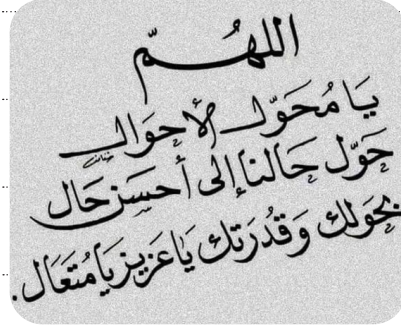 اللهُمّ
يَا مُحَوّل الأحوَال
حَوّل حَالنَا إلى أحسَن حَال
بحَولك وَقُدرَتك يَا عَزيز يَا مُتعَال.